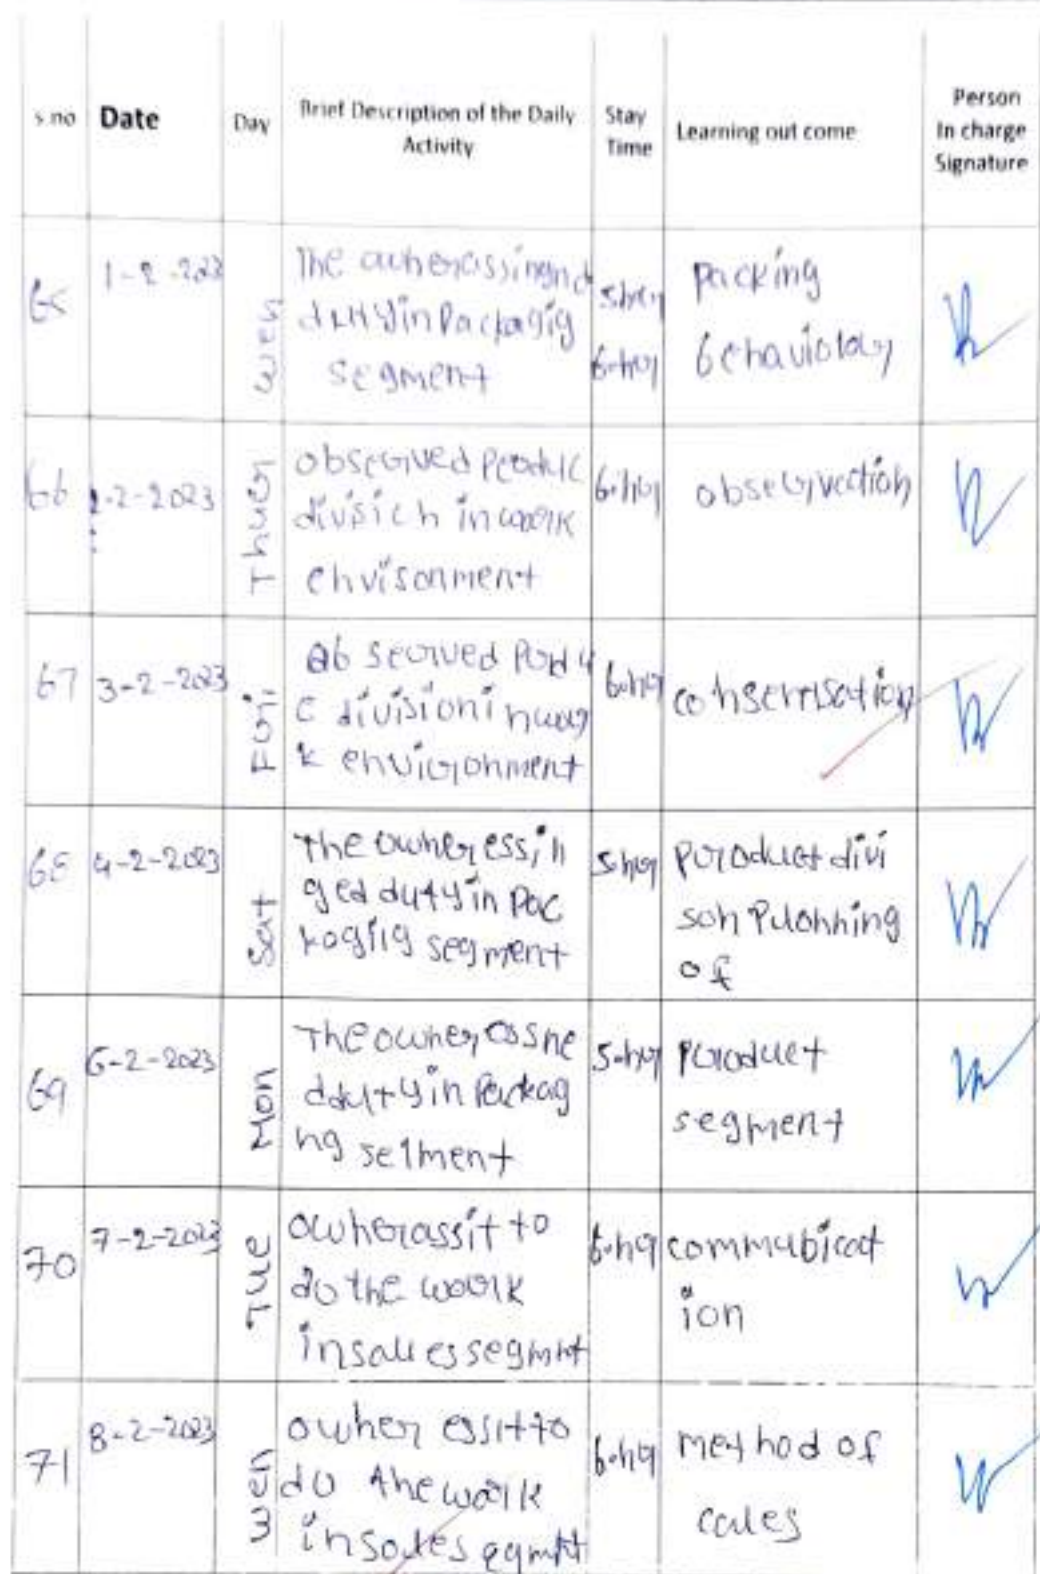 s.no Date Day Brief Description of the Daily Activity Stay Time Learning out come Person In charge Signature
65 1-2-2023 wen
The owner assingnd
duty in Packagig
segment
5hr
6-hr
packing
behaviour
66 2-2-2023 Thuer
observed Produc
division in work
environment
6-hr
observection
67 3-2-2023 Fri
observed Produ
c division in wor
k environment
6-hr
68 4-2-2023 Sat
The owner essin
ged duty in Pac
kagiig segment
5-hr
Product divi
son Planning
of
69 6-2-2023 Mon
The owner assne
d duty in Packag
ng segment
5-hr
Product
segment
70 7-2-2023 Tue
owner assit to
do the work
in sales segmnt
6-hr
commubicat
ion
71 8-2-2023 wen
owner essit to
do the work
in sales egmnt
6-hr
method of
cales